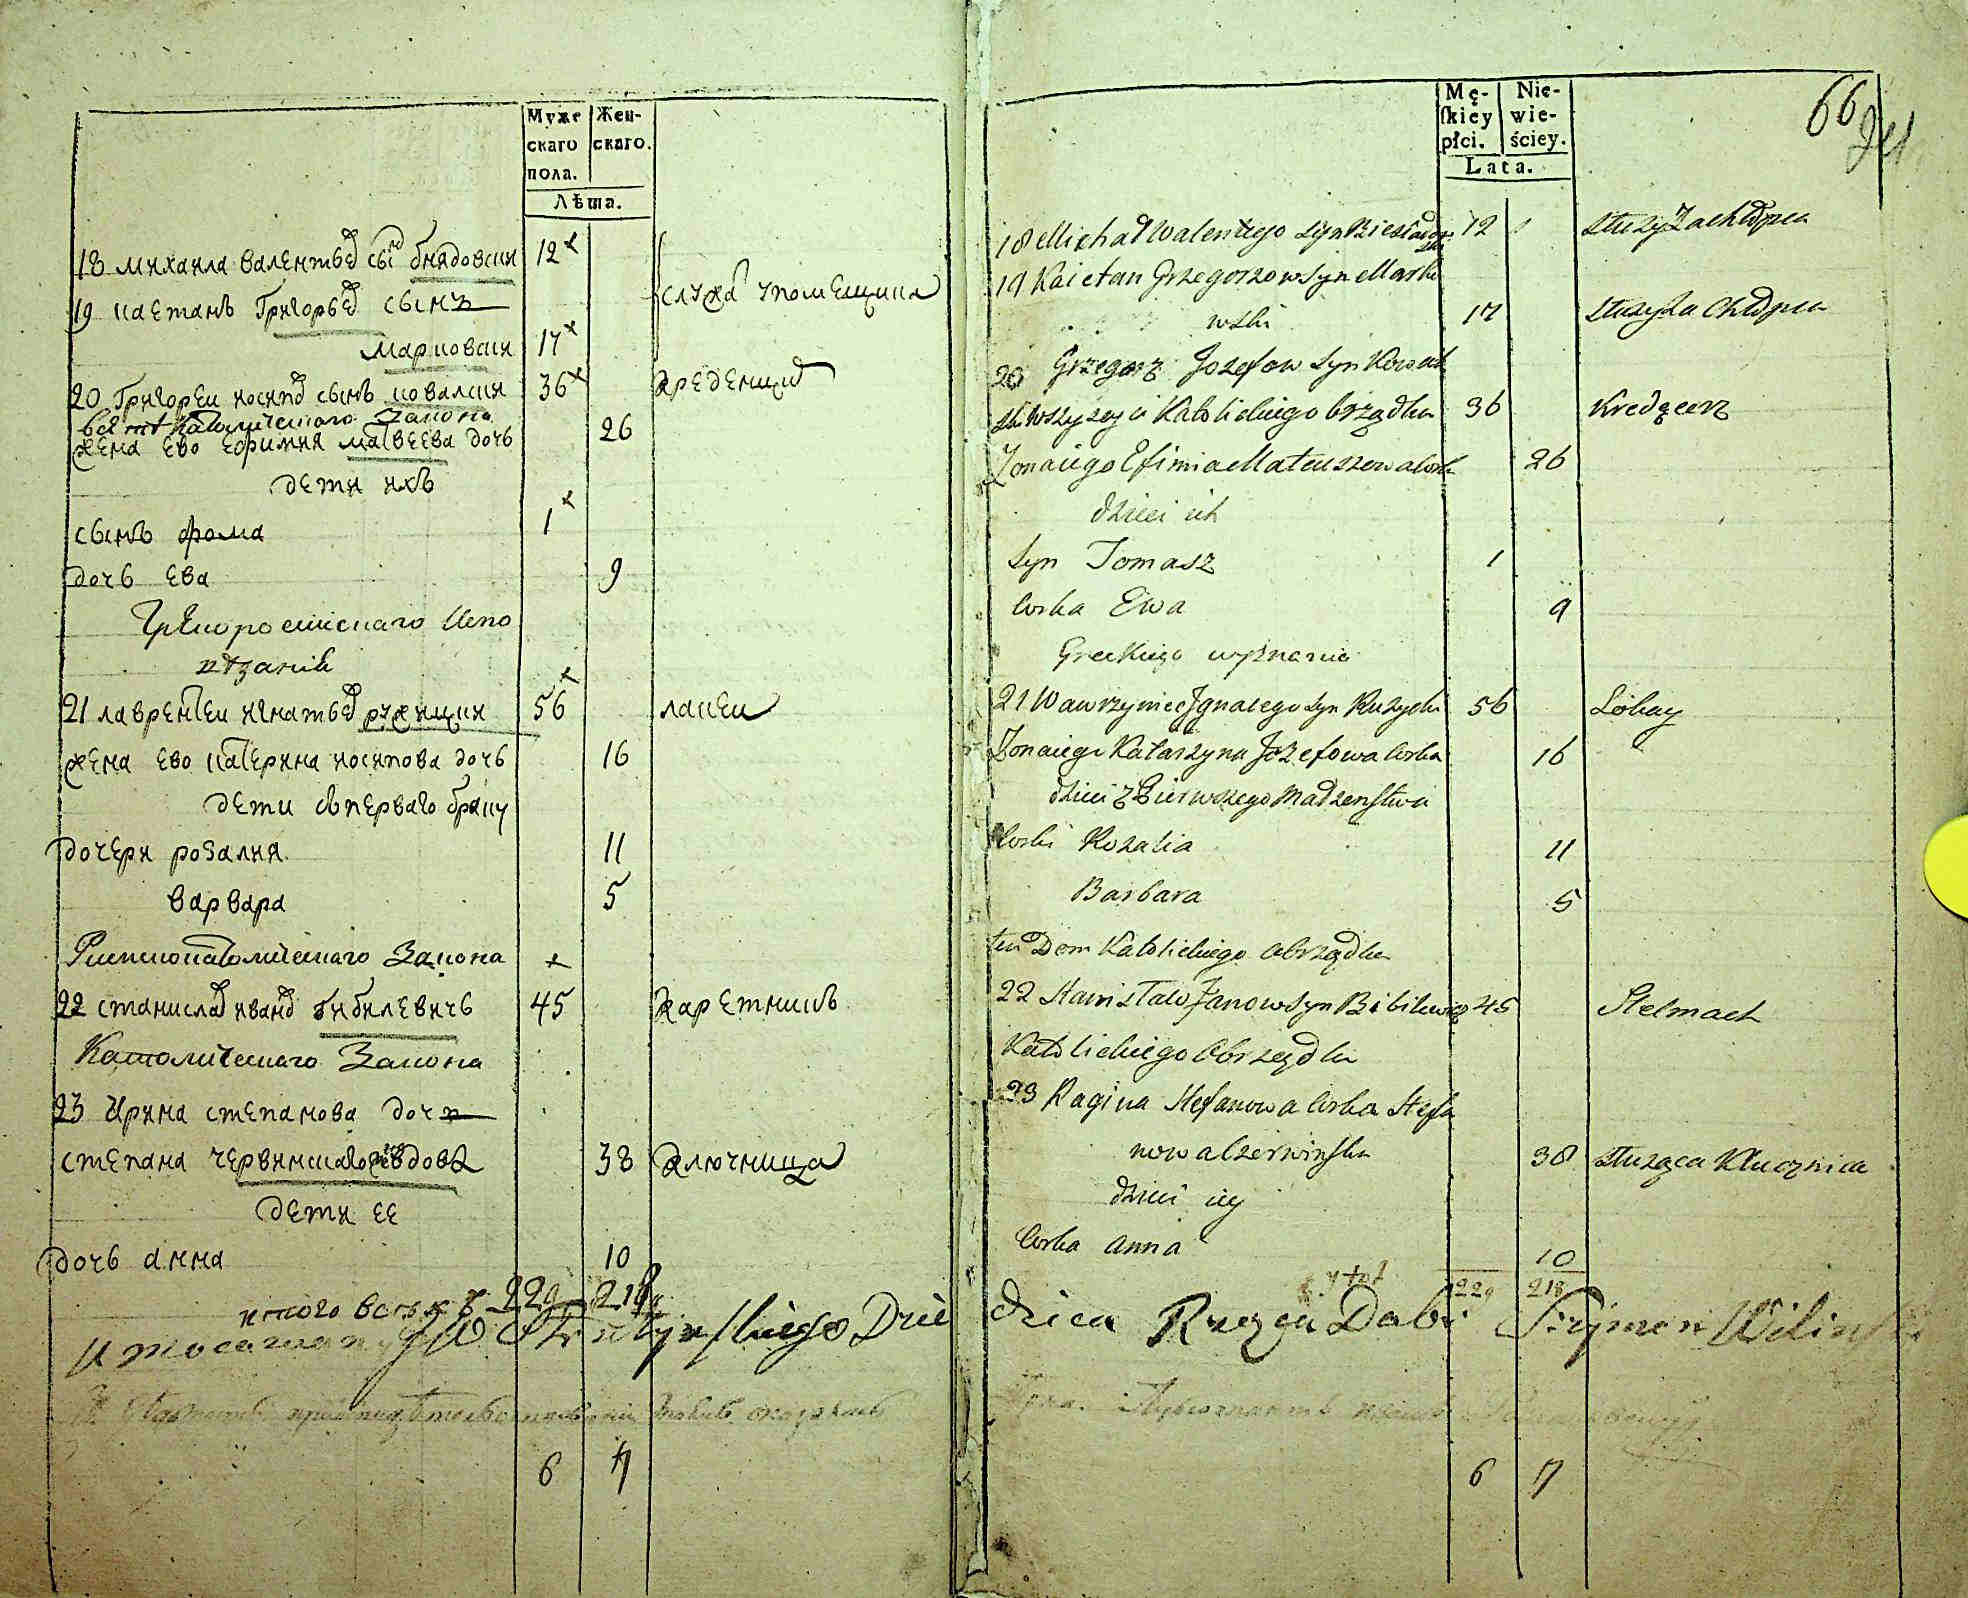 Муже
скаго
пола.
Жен-
скаго.
Лѣта.
18 михаила валентьев сы
12
19 каетанъ Григорьев сынъ
служа у помещика
марковски
17
20 Григореи иосипов сынъ ковалски
36
все католическаго Закона
жена ево Ефимия матвеева дочь
26
дети ихъ
сынъ фома
1
дочь ева
9
Грекороссиского Испо
ведания
21 лаврентеи игнатьев ружицки
56
лакеи
жена ево катерина иосипова дочь
16
дети съ перваго браку
дочери розалия
11
варвара
5
Римскокатолическаго Закона
22 станислав иванов бибилевичь
45
каретникъ
Католическаго Закона
23 Ирина степанова дочь
степана червинскаго вдова
38
ключница
дети ее
дочь анна
10
итого всехъ 229 218
6 7
Mę-
ſkiey
płci.
Nie-
wie-
ściey.
Lata.
66
18 Michał Walentego syn
12
służy za chłopca
19 Kaietan Grzegorzow syn Marko
wski
17
służy za chłopca
20 Grzegorz Jozefow syn Kowal
ski wszyscy Katolickiego obrządku
36
Kredęcerz
Zona iego Efimia Mateuszowa Corka
26
dzieci ich
Syn Tomasz
1
Corka Ewa
9
Greckiego wyznania
21 Wawrzyniec Ignacego syn Ruzycki
56
Lokay
Zona iego Katarzyna Jozefowa Corka
16
dzieci z Pierwszego Małzenstwa
Corki Rozalia
11
Barbara
5
ten Dom Katolickiego Obrządku
22 Stanisław Janow syn Bibilewicz
45
Stelmach
Katolickiego Obrządku
23 Ragina Stefanowa Corka Stefa
nowa Czerwinska
38
służąca Klucznica
dzieci iey
Corka Anna
10
229 218
6 7